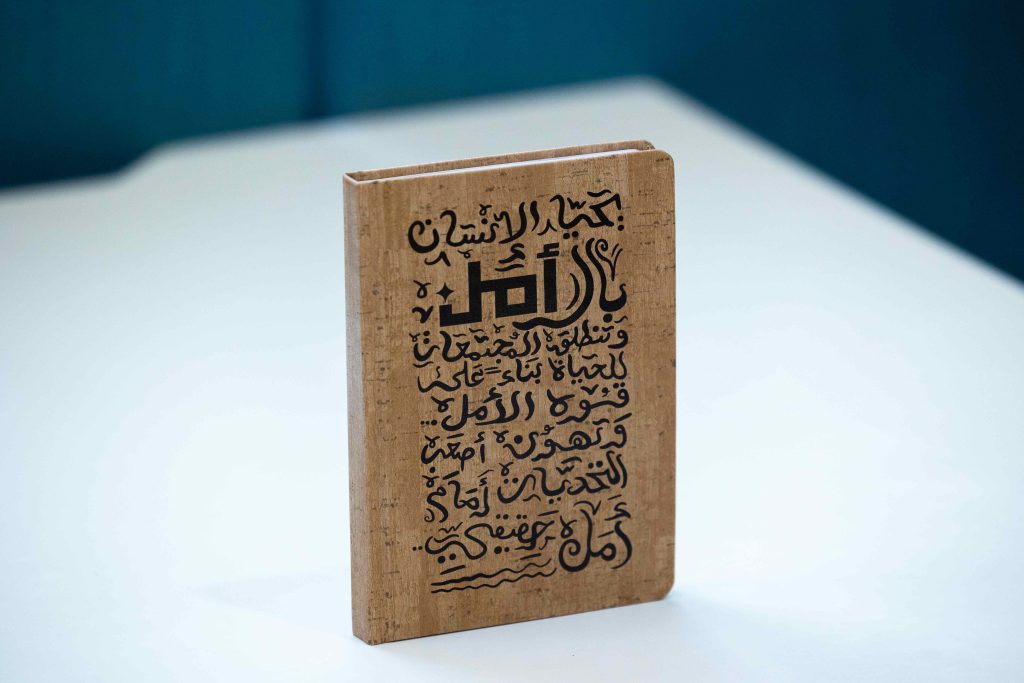 يحيا الإنسان
بالأمل
وتنطلق المجتمعات
للحياة بناء على
قوة الأمل..
وتهون أصعب
التحديات أمام
أمل حقيقي..